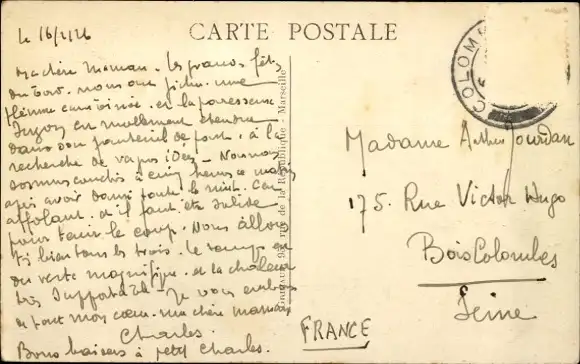 CARTE POSTALE
le 16/2/26
Ma chère Maman. Les grandes fêtes
du bord. nous ont fichu une
flemme carabinée. et la paresseuse
Suzon est mollement étendue
dans son fauteuil de pont. à la
recherche de vagues idées - Nous nous
sommes couchés à cinq heures ce matin
après avoir dansé toute la nuit. C'est
affolant. et il faut être solide
pour tenir le coup. Nous allons
bien tous les trois. Le temps est
magnifique. et la chaleur
très supportable - Je vous embrasse
de tout mon cœur. ma chère maman
Charles.
Bons baisers à petit Charles.
rue de la République - Marseille
COLOMB
Madame Arthur Jourdan
175. Rue Victor Hugo
Bois Colombes
Seine
FRANCE